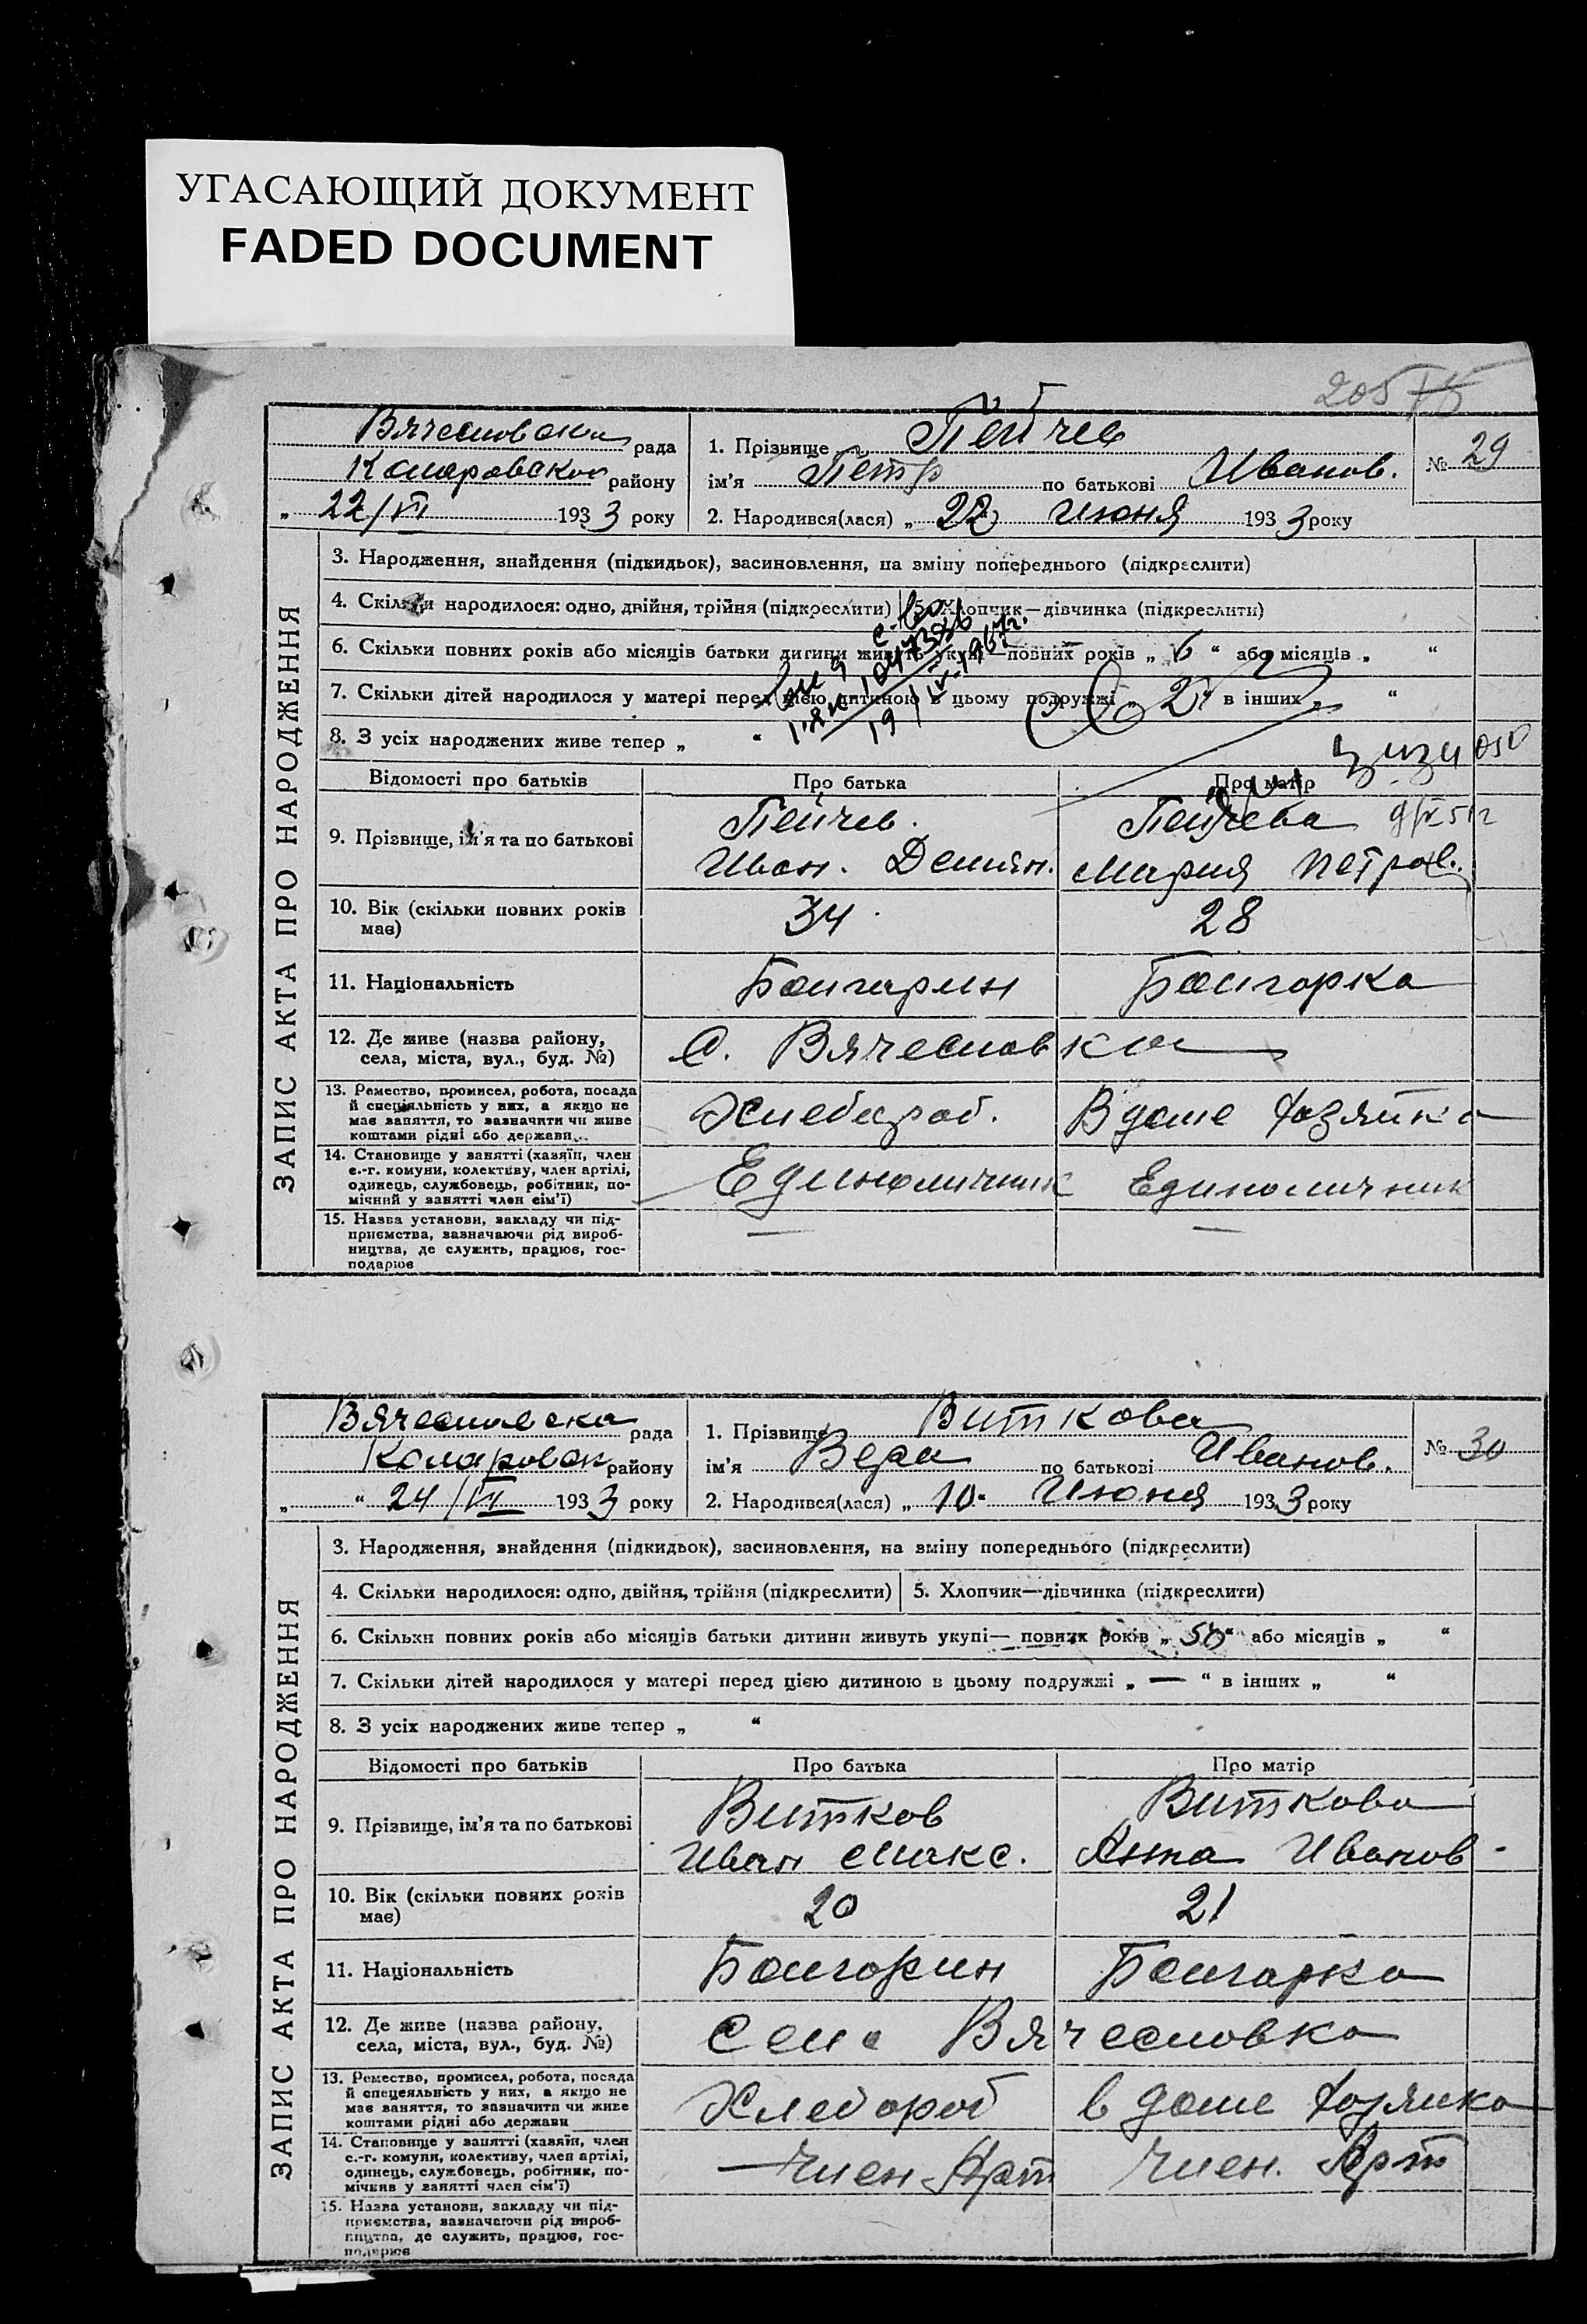 УГАСАЮЩИЙ ДОКУМЕНТ
FADED DOCUMENT
205
Вячесловска рада
Коларовског району
„ 22/VI 1933 року
1. Прізвище Пейчев
ім'я Пётр по батькові Иванов.
2. Народився(лася) „ 22 Июня 1933 року
№ 29
ЗАПИС АКТА ПРО НАРОДЖЕННЯ
3. Народження, знайдення (підкидьок), засиновлення, на зміну попереднього (підкреслити)
4. Скільки народилося: одно, двійня, трійня (підкреслити) 5. Хлопчик—дівчинка (підкреслити)
6. Скільки повних років або місяців батьки дитини живуть укупі—повних років „ 6 “ або місяців „ “
7. Скільки дітей народилося у матері перед цією дитиною в цьому подружжі „ 2 “ в інших „ “
8. З усіх народжених живе тепер „ “
Відомості про батьків Про батька Про матір
9. Прізвище, ім'я та по батькові
Пейчев. Пейчева
Иван. Демян. Мария Петров.
10. Вік (скільки повних років має) 34 28
11. Національність Болгарин Болгорка
12. Де живе (назва району, села, міста, вул., буд. №) с. Вячесловка
13. Ремество, промисел, робота, посада
й спеціяльність у них, а якщо не
має заняття, то зазначити чи живе
коштами рідні або держави
Хлебороб. В доме хозяйка
14. Становище у занятті (хазяїн, член
с.-г. комуни, колективу, член артілі,
одинець, службовець, робітник, по-
мічний у занятті член сім'ї)
Единоличник Единоличник
15. Назва установи, закладу чи під-
приємства, зазначаючи рід вироб-
ництва, де служить, працює, гос-
подарює
— —
Вячесловска рада
Коларовск району
„ “ 24/VI 1933 року
1. Прізвище Виткова
ім'я Вера по батькові Иванов.
2. Народився(лася) „ 10 “ Июня 1933 року
№ 30
ЗАПИС АКТА ПРО НАРОДЖЕННЯ
3. Народження, знайдення (підкидьок), засиновлення, на зміну попереднього (підкреслити)
4. Скільки народилося: одно, двійня, трійня (підкреслити) 5. Хлопчик—дівчинка (підкреслити)
6. Скільки повних років або місяців батьки дитини живуть укупі— повних років „ “ або місяців „ “
7. Скільки дітей народилося у матері перед цією дитиною в цьому подружжі „ — “ в інших „ “
8. З усіх народжених живе тепер „ “
Відомості про батьків Про батька Про матір
9. Прізвище, ім'я та по батькові
Витков Виткова
Иван Макс. Анна Иванов.
10. Вік (скільки повних років має) 20 21
11. Національність Болгорин Болгарка
12. Де живе (назва району, села, міста, вул., буд. №) Село Вячесловка
13. Ремество, промисел, робота, посада
й спецеяльність у них, а якщо не
має заняття, то зазначити чи живе
коштами рідні або держави
Хлебороб в доме хозяйка
14. Становище у занятті (хазяїн, член
с.-г. комуни, колективу, член артілі,
одинець, службовець, робітник, по-
мічний у занятті член сім'ї)
Член Арт Член. Арт
15. Назва установи, закладу чи під-
приємства, зазначаючи рід вироб-
ництва, де служить, працює, гос-
подарює